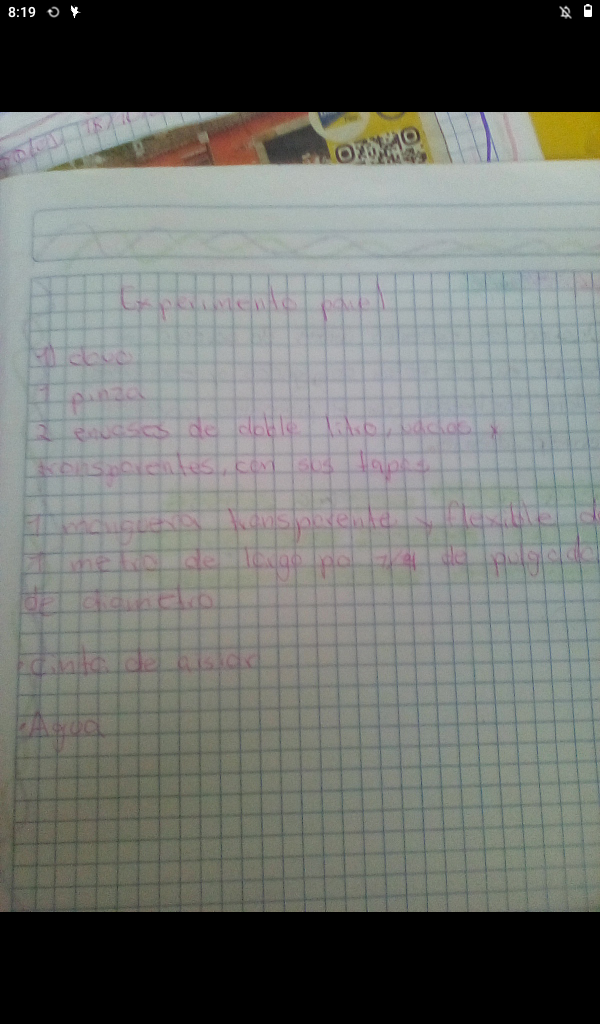 8:19
Experimento
1 clavo
1 pinza
2 envases de doble litro, vacios y
transparentes, con sus tapas
1 manguera transparente y flexible de
1 metro de largo po 1/4 de pulgada
de diametro
· cinta de aislar
· Agua